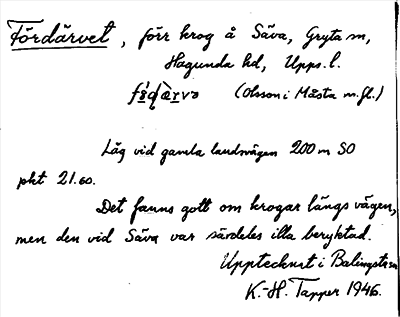 Fördärvet, förr krog å Säva, Gryta sn,
Hagunda hd, Upps. l.
(Olsson i Måsta m.fl.)
Låg vid gamla landsvägen 200 m SO
pkt 21.60.
Det fanns gott om krogar längs vägen,
men den vid Säva var särdeles illa beryktad.
Upptecknat i Balingsta sn
K.-H. Tapper 1946.